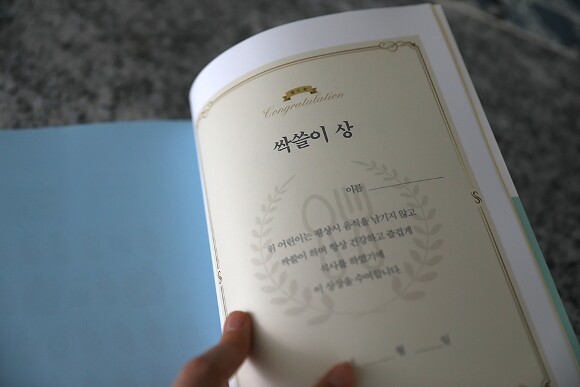 Congratulation
싹쓸이 상
이름
위 어린이는 평상시 음식을 남기지 않고
싹쓸이 하며 항상 건강하고 즐겁게
식사를 하였기에
이 상장을 수여합니다.
월 일